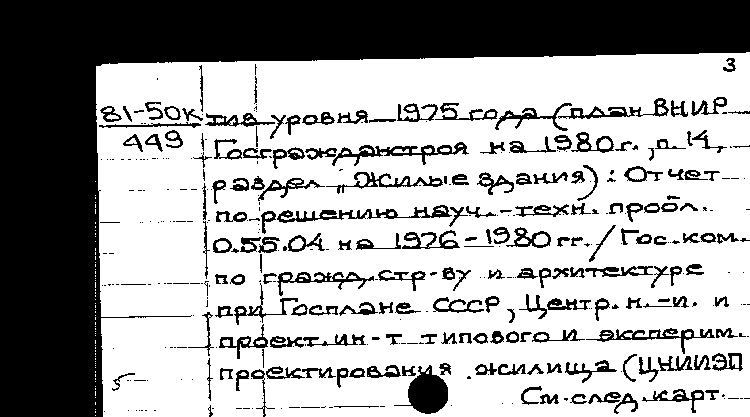 3
81-50к тив уровня 1975 года (план ВНИР
449 Госгражданстроя на 1980 г., п. 14,
раздел „Жилые здания): Отчет
по решению науч.-техн. пробл.
0.55.04 на 1976-1980 гг. / Гос. ком.
по гражд. стр-ву и архитектуре
при Госплане СССР, Центр. н.-и. и
проект. ин-т типового и эксперим.
проектирования жилища (ЦНИИЭП
5 См. след. карт.